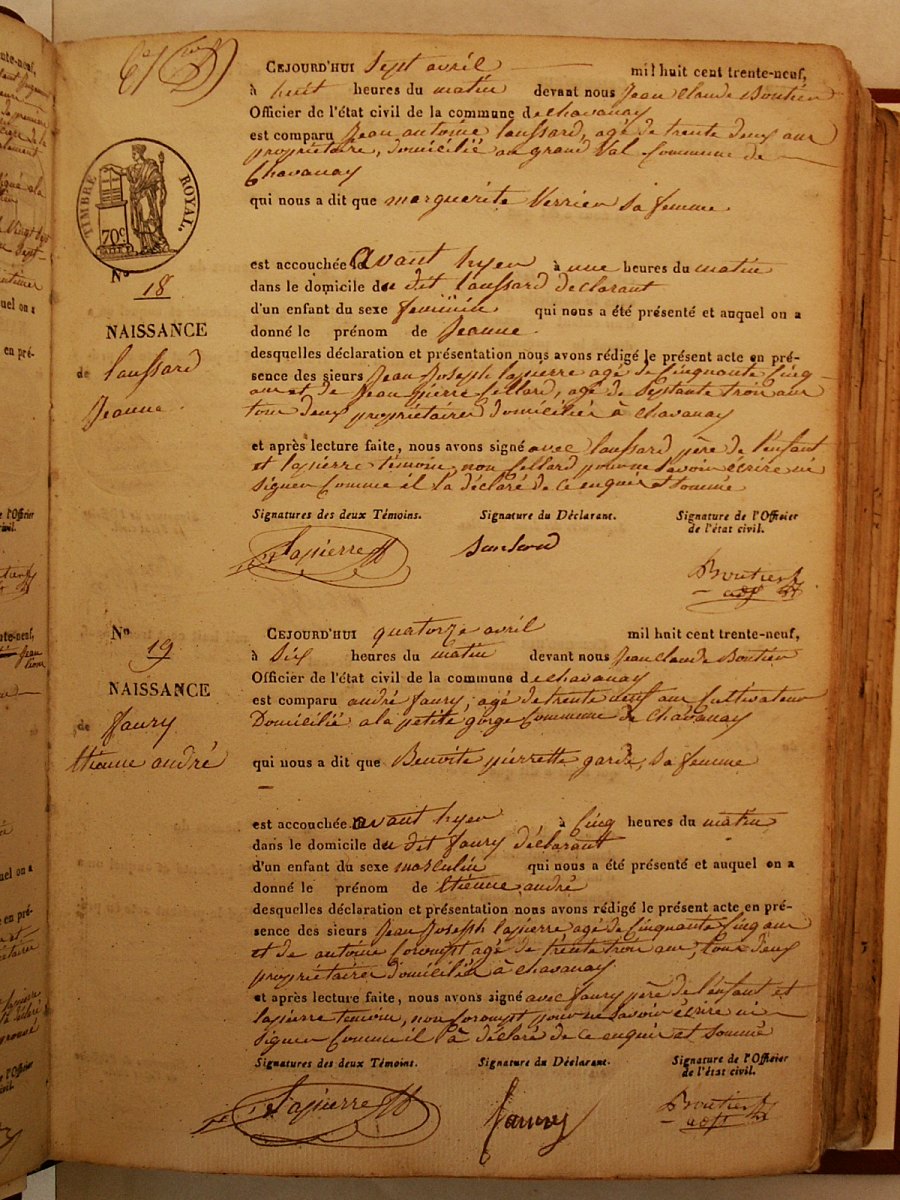 CEJOURD'HUI Sept avril mil huit cent trente-neuf,
à huit heures du matin devant nous Jean Claude Boutier
Officier de l'état civil de la commune de chavanay
est comparu Jean antoine laussard, agé de trente deux ans
propriétaire, domicilié au grand Val Commune de
Chavanay
qui nous a dit que marguerite Verrier sa femme
TIMBRE ROYAL.
70c
est accouchée avant hyer à une heures du matin
dans le domicile du dit laussard déclarant
d'un enfant du sexe feminin qui nous a été présenté et auquel on a
donné le prénom de Jeanne.
desquelles déclaration et présentation nous avons rédigé le présent acte en pré-
sence des sieurs Jean Joseph lapierre agé de Cinquante Cinq
ans et de Jean pierre Cellard, agé de Septante trois ans
tous deux propriétaires domiciliés à chavanay
et après lecture faite, nous avons signé avec laussard père de l'enfant
et lapierre témoin, non Cellard pour ne savoir écrire ni
signer Comme il la déclaré de ce enquis et sommé
Signatures des deux Témoins. Signature du Déclarant. Signature de l'Officier
de l'état civil.
Lapierre
Boutier
adjt
No
18
NAISSANCE
de laussard
Jeanne.
No
19
NAISSANCE
de faury
étienne andré
CEJOURD'HUI quatorze avril mil huit cent trente-neuf,
à Six heures du matin devant nous Jean Claude Boutier
Officier de l'état civil de la commune de chavanay
est comparu andré faury, agé de trente neuf ans Cultivateur
Domicilié a la petite gorge Commune de Chavanay
qui nous a dit que Benoite pierrette garde, sa femme
est accouchée avant hyer à Cinq heures du matin
dans le domicile du dit faury déclarant
d'un enfant du sexe masculin qui nous a été présenté et auquel on a
donné le prénom de étienne andré
desquelles déclaration et présentation nous avons rédigé le présent acte en pré-
sence des sieurs Jean Joseph lapierre agé de Cinquante Cinq ans
et de antoine agé de trente trois ans, tous deux
propriétaires domiciliés à chavanay
et après lecture faite, nous avons signé avec faury père de l'enfant et
lapierre temoin, non pour ne savoir écrire ni
signer Comme il à déclaré de ce enquis et sommé
Signatures des deux Témoins. Signature du Déclarant. Signature de l'Officier
de l'état civil.
Lapierre faury Boutier
adjt